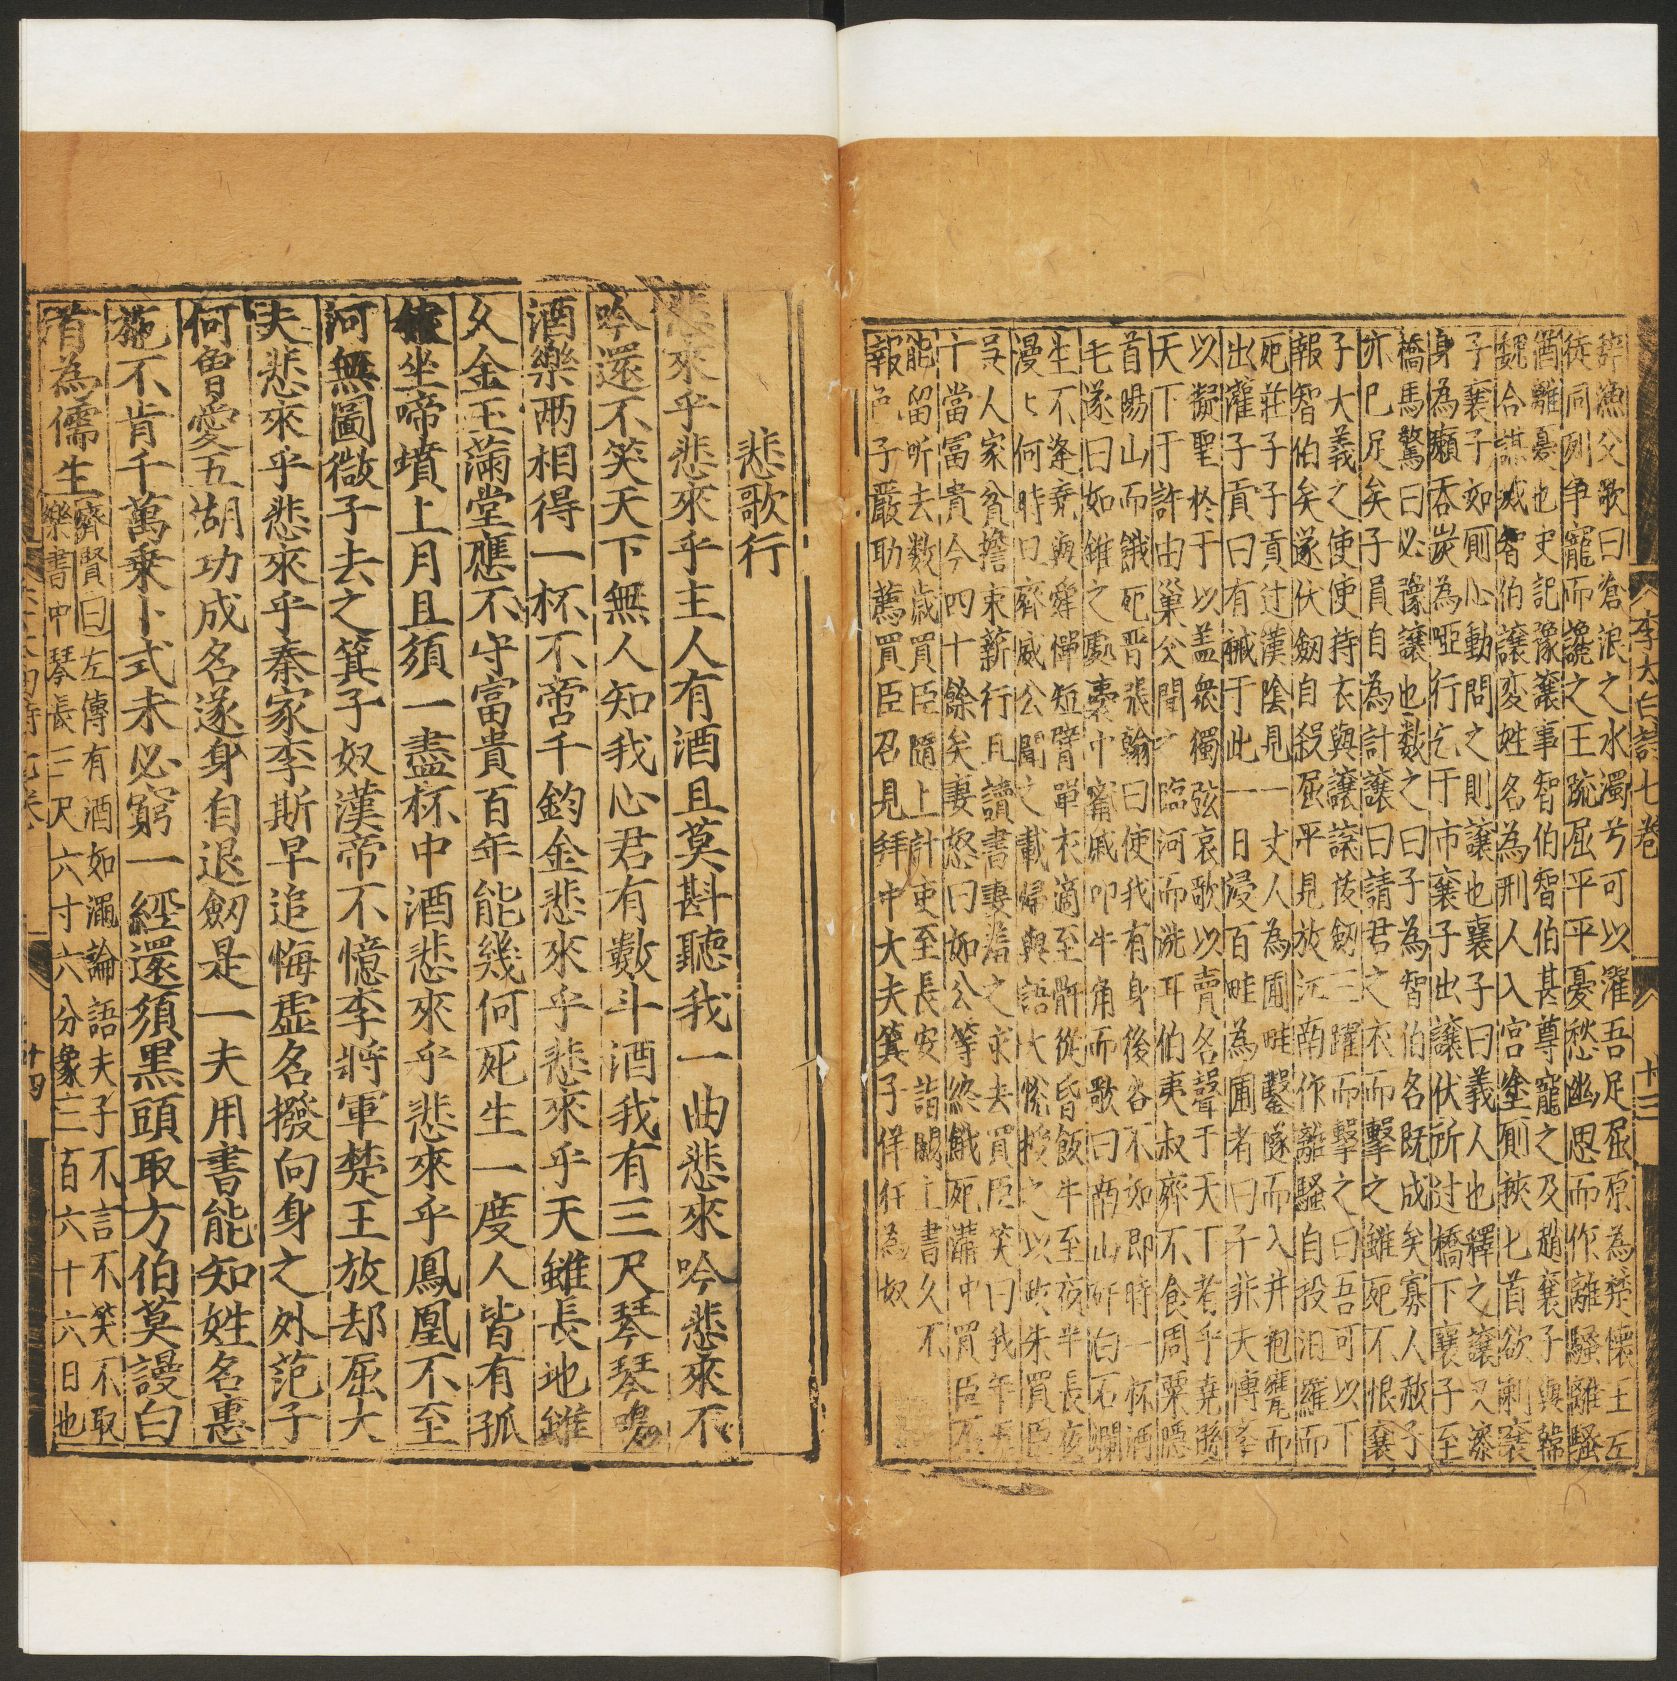 辭漁父歌曰滄浪之水濁兮可以濯吾足屈原為楚懷王左
徒同列爭寵而讒之王疏屈平平憂愁幽思而作離騷離騷
猶離憂也史記豫讓事智伯智伯甚尊寵之及趙襄子與韓
魏合謀滅智伯讓变姓名為刑人入宮塗厠挾匕首欲刺襄
子襄子如厠心動問之則讓也襄子曰義人也釋之讓又漆
身為癩吞炭為啞行乞于市襄子出讓伏所过橋下襄子至
橋馬驚曰必豫讓也数之曰子為智伯名既成矣寡人赦子
亦已足矣子員自為計讓曰請君之衣而擊之雖死不恨襄
子大義之使使持衣與讓讓拔劒三躍而擊之曰吾可以下
報智伯矣遂伏劒自殺屈平見放沅南作離騷自投汨羅而
死莊子子貢过漢陰見一丈人為圃畦鑿隧而入井抱甕而
出灌子貢曰有械于此一日浸百畦為圃者曰子非夫博學
以擬聖於于以盖衆獨弦哀歌以賣名聲于天下者乎堯
天下于許由巢父聞之臨河而洗耳伯夷叔齊不食周粟隱
首陽山而餓死晋張翰曰使我有身後名不如即時一杯酒
毛遂曰如錐之處囊中甯戚叩牛角而歌曰南山矸白石爛
生不逢堯與舜禪短單衣適至骭從昏飯牛至夜半長夜
漫〻何時旦齊威公聞之載歸與語大悅授之以政朱買臣
吴人家貧擔束薪行且讀書妻羞之求去買臣笑曰我年五
十當冨貴今四十餘矣妻怒曰如公等終餓死溝中買臣不
能留听去数歲買臣隨上計吏至長安詣闕上書久不
報邑子嚴助薦買臣召見拜中大夫箕子佯狂為奴
李太白詩七卷 十三
悲歌行
悲來乎悲來乎主人有酒且莫斟聽我一曲悲來吟悲來不
吟還不笑天下無人知我心君有數斗酒我有三尺琴琴鳴
酒樂兩相得一杯不啻千鈞金悲來乎悲來乎天雖長地雖
久金玉滿堂應不守富貴百年能幾何死生一度人皆有孤
猿坐啼墳上月且須一盡杯中酒悲來乎悲來乎鳳凰不至
河無圖微子去之箕子奴漢帝不憶李將軍楚王放却屈大
夫悲來乎悲來乎秦家李斯早追悔虛名撥向身之外范子
何曾愛五湖功成名遂身自退劒是一夫用書能知姓名惠
施不肯千萬乗卜式未必窮一經還須黒頭取方伯莫謾白
首為儒生
齊賢曰左傳有酒如澠論語夫子不言不笑不取
樂書中琴長三尺六寸六分象三百六十六日也
十四